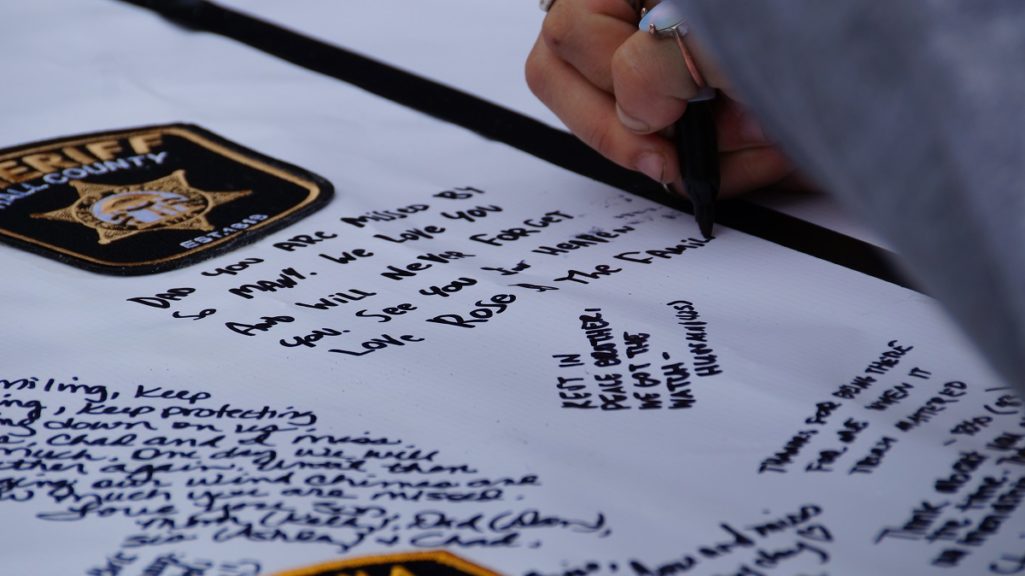 HERIFF
ALL COUNTY
EST. 1819
DAD YOU ARE MISSED BY
SO MANY. WE LOVE YOU
AND WILL NEVER FORGET
YOU. SEE YOU IN HEAVEN
LOVE ROSE & THE FAMIL
REST IN
PEACE BROTHER!
WE GOT THE
WATCH-
THANKS FOR BEING THERE
FOR ME WHEN IT
REALLY MATTERED
miling, Keep
ing, Keep protecting
ing down on us.
Chad and I miss
much. One day we will
ther again. Until then
ging our wind chimes are
much you are missed.
Love you, Son
Mom (Kathy), Dad (Don),
Sis (Ashley) & Chad
THINK ABOUT
THE TIME.
love and miss